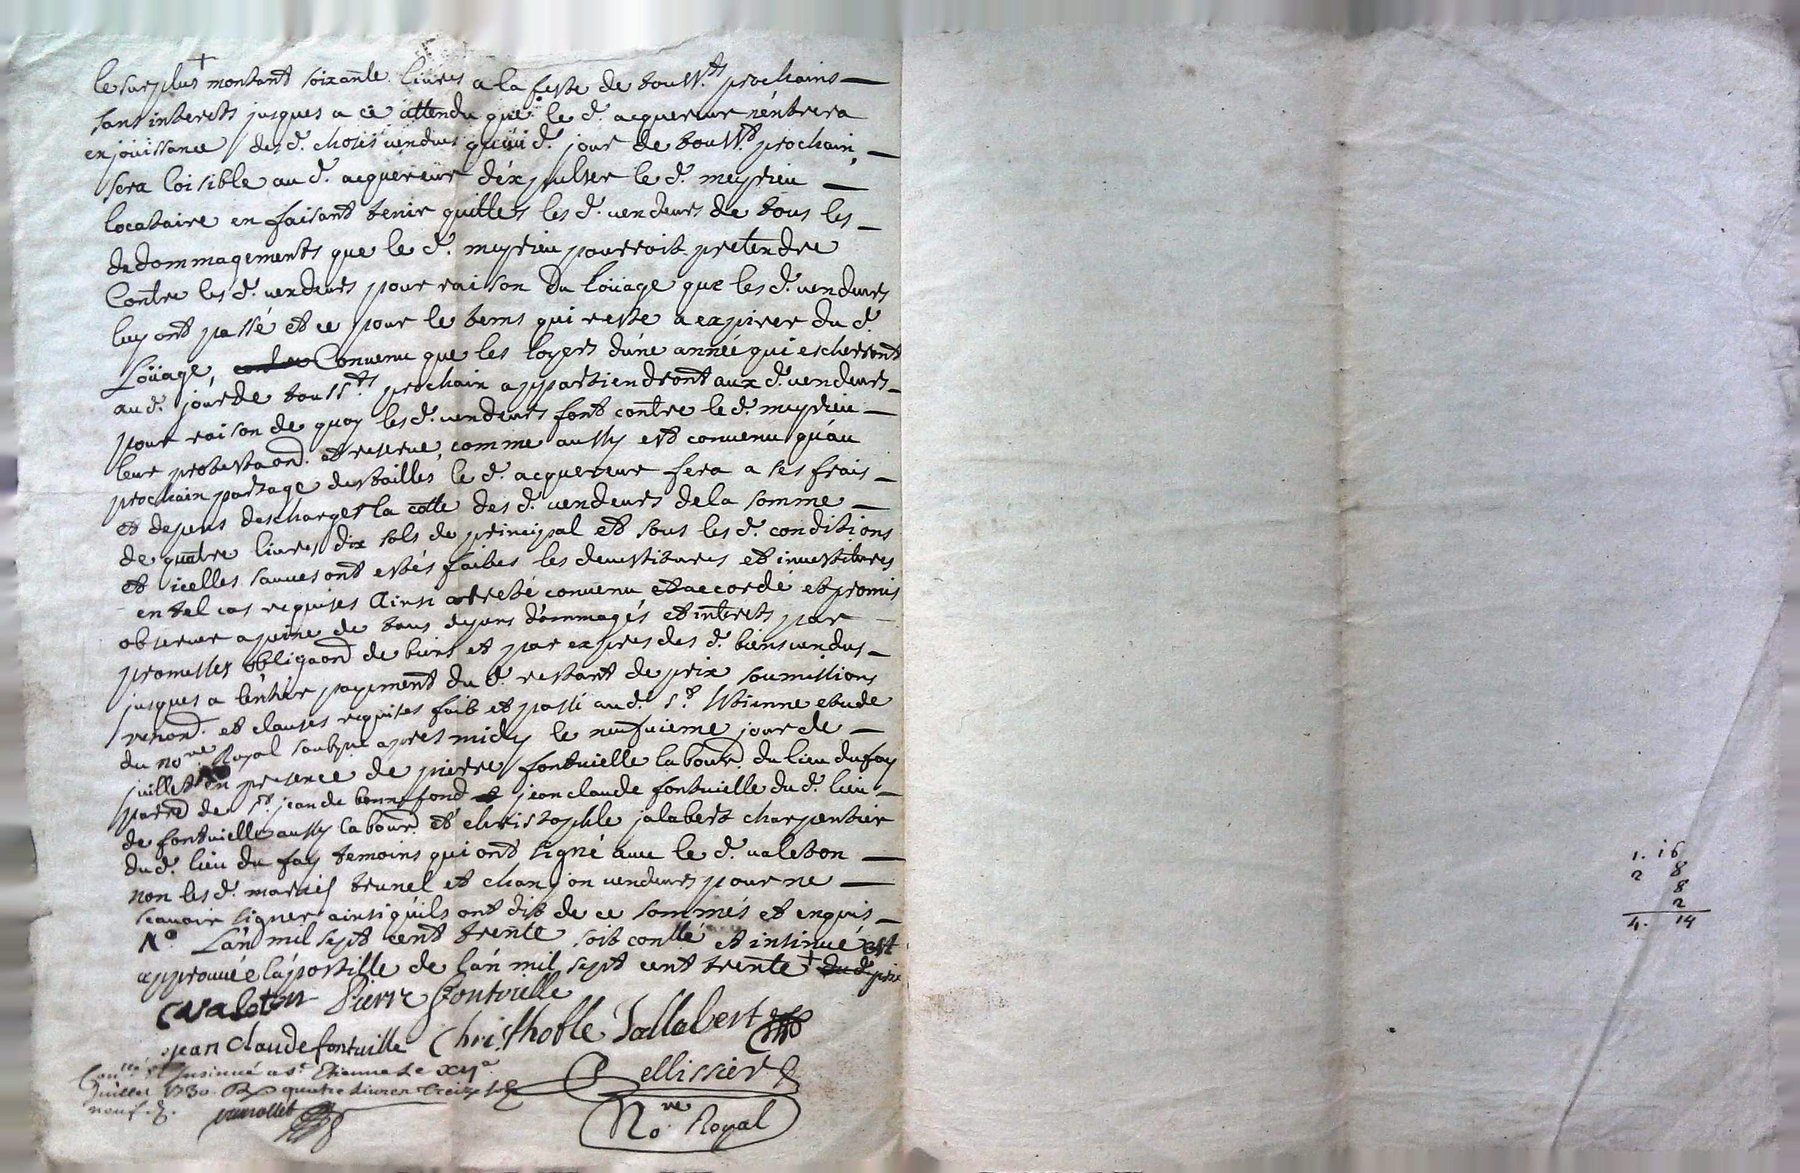 le surplus + montant soixante livres a la feste de touss.ts prochains
sans interests jusques a ce attendu que le d. acquereur n'entrera
en jouissance des d. choses vendues qu'au d. jour de touss.ts prochain,
sera loisible au d. acquereur d'expulser le d. meyrieu
locataire en faisant tenir quittes les d. vendeurs de tous les
dedommagements que le d. meyrieu pourroit pretendre
Contre les d. vendeurs pour raison du loüage que les d. vendeurs
luy ont passé et ce pour le tems qui reste a expirer du d.
Loüage, Convenu que les loyers d'une année qui escherront
au d. jour de touss.ts prochain appartiendront aux d. vendeurs
pour raison de quoy les d. vendeurs font contre le d. meyrieu
leur protestaon. et reserve, comme aussy est convenu qu'au
prochain partage des tailles le d. acquereur fera a ses frais
et depens descharger la cotte des d. vendeurs de la somme
de quatre livres dix sols de principal et sous les d. conditions
et icelles sauves ont estés faites les devestitures et investitures
en tel cas requises Ainsi arresté convenu et accordé et promis
observer a peine de tous depens dommagés et interests par
promesses obligaond de biens et par expres des d. biens vendus
jusques a l'entier payement du d. restant de prix soumissions
renond. et clauses requises fait et passé au d. St. Etienne etude
du no.re Royal soubzné apres midy le neufuieme jour de
juillet No en presence de pierre fontvielle labour. du lieu du fay
parred de St. jean de bonnefond jean claude fontvielle du d. lieu
de fontvielle aussy labour. et christophle jalabert charpentier
du d. lieu du fay temoins qui ont signé avec le d. valeton
non les d. brunel et chanjon vendeurs pour ne
scavoir signer ainsi qu'ils ont dit de ce sommés et enquis
No L'an mil sept cent trente soit conllé et insinué est
approuvée l'apostille de l'an mil sept cent trente + du d. prix
Cavaleton Pierre Fontvielle
jean Claude fontvielle Christhofle Jallabert
Conllé et Insinué a St. Etienne le XIJe Pellissier
Juillet 1730. R quatre Livres Treize sols
neuf d. No.re Royal
1. 16
2 8
8
2
4. 14